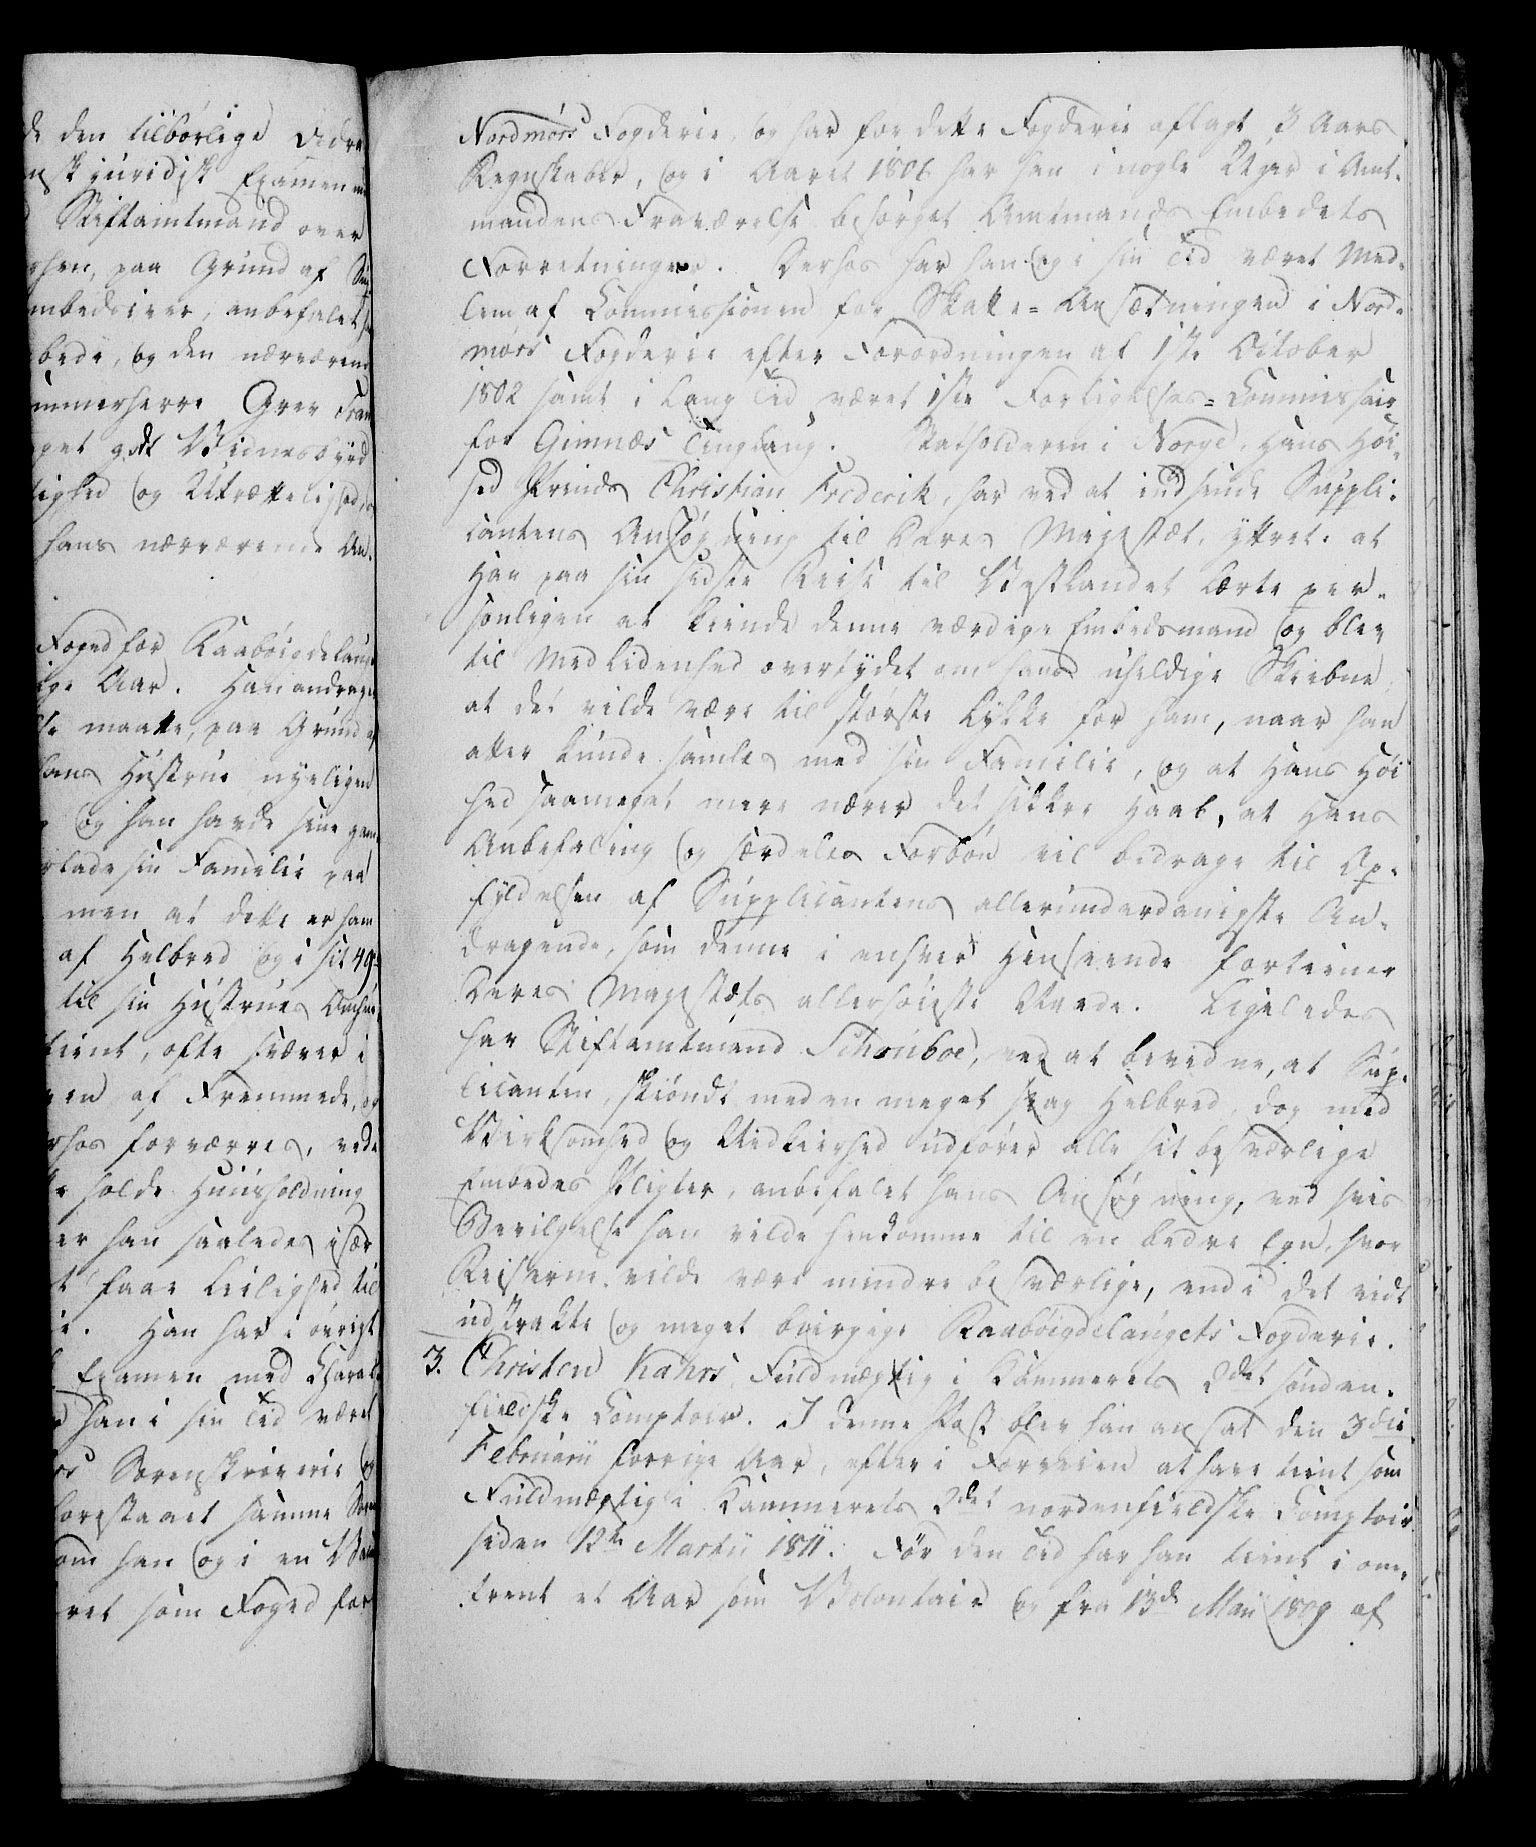 de den tilbørlige Vidn
nsk juridisk Examen
Stiftamtmand over
paa Grund af
mbedsiver, anbefalet
bede, og den nærværend
ammerherre Grev
get godt Vidnesbyrd
lighed og Utrættelighed,
hans nærværende An-
Foged for Raabøigdelaug
ige Aar. Han andrager
maatte, paa Grund af
hans Hustrue nyeligen
og han havde sine
rlade sin Familie paa
men at dette er ham
af Helbred og i sit 49de
til sin Hustrues
tient, ofte svæver i
af Fremmede, og
rhos forværres, ved
holde Huusholdning
er han saaledes især
t faae Leilighed til
Han har i øvrigt
Examen med Charact
han i sin Tid været
Sorenskriverie og
forestaaet samme
om han og i en
ret som Foged for
Nordmørs Fogderie, og har for dette Fogderie aflagt 3 Aars
Regnskaber, og i Aaret 1806 har han i nogle Uger i Amt-
mandens Fraværelse besørget Amtmands Embedets
Forretninger. Derhos har han og i sin Tid været Med-
lem af Commissionen for Skatte-Ansætningen i Nord-
mørs Fogderie efter Forordningen af 1ste October
1802 samt i lang Tid været 1ste Forligelses-Commissair
for Gimnæs Tinglaug. Statholderen i Norge, Hans Høi-
hed Prinds Christian Frederik, har ved at indsende Suppli-
cantens Ansøgning til Deres Majestæt, yttret, at
Han paa sin sidste Reise til Vestlandet lærte per-
sonligen at kiende denne værdige Embedsmand og blev
til Medlidenhed overtydet om hans uheldige Skiebne,
at det vilde være til største Lykke for ham, naar han
atter kunde samles med sin Familie, og at Hans Høi
hed saameget mere nærer det sikkre Haab, at Hans
Anbefaling og særdeles Forbøn vil bidrage til Op-
fyldelsen af Supplicantens allerunderdanigste An-
dragende, som denne i enhver Henseende fortiener
Deres Majestæts allerhøieste Naade. Ligeledes
har Stiftamtmand Schouboe, ved at bevidne, at Sup-
licanten, skiøndt med en meget svag Helbred, dog med
Virksomhed og Nidkierhed udfører alle sit besværlige
Embedes Pligter, anbefalet hans Ansøgning, ved hvis
Bevilgelse han vilde henkomme til en bedre Egn, hvor
Reiserne vilde være mindre besværlige, end i det vidt
udstrakte og meget biergige Raabøigdelaugets Fogderie.
3. Christen Kahrs, Fuldmægtig i Kammerets 2det sønden-
fieldske Comptoir. I denne Post blev han ansat den 3die
Februarii forrige Aar, efter i Forveien at have tient som
Fuldmægtig i Kammerets 2det nordenfieldske Comptoir
siden 12te Martii 1811. Før den Tid har han tient i om-
trent et Aar som Volontair og fra 13de Maii 1809 af